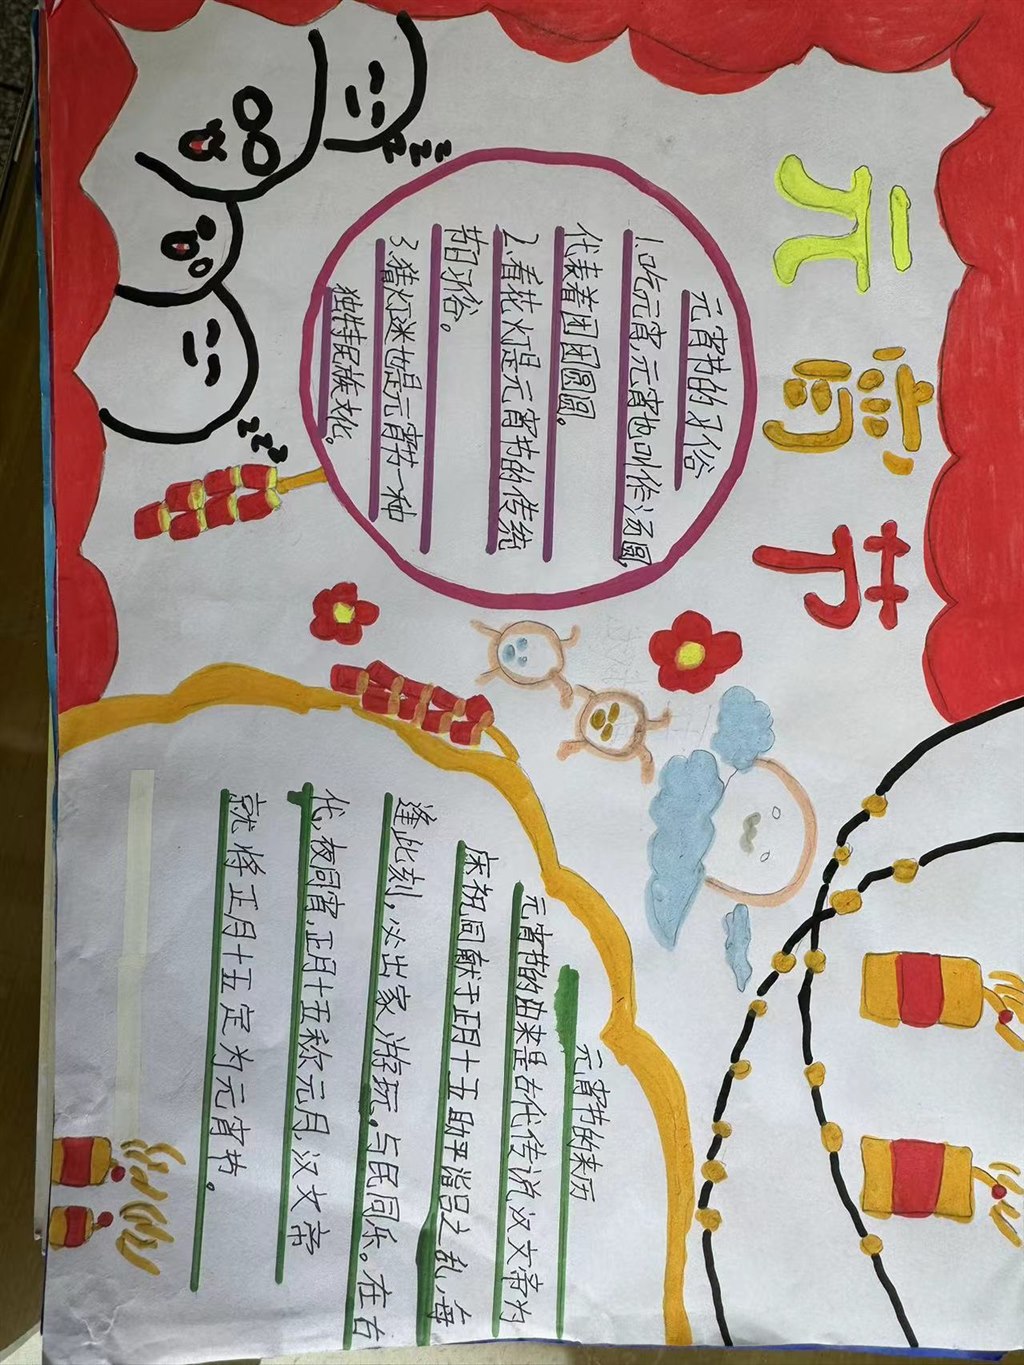 元宵节
元宵节的习俗
1.吃元宵,元宵也叫作汤圆,
代表着团团圆圆。
2.看花灯是元宵节的传统
节日习俗。
3.猜灯迷也是元宵节一种
独特民族文化。
zzz
zzz
元宵节的来历
元宵节的由来是古代传说汉文帝为
庆祝同献于正月十五助严诸吕之乱,每
逢此刻,必出家游玩,与民同乐。在古
代,夜同宵,正月十五称元月,汉文帝
就将正月十五定为元宵节。